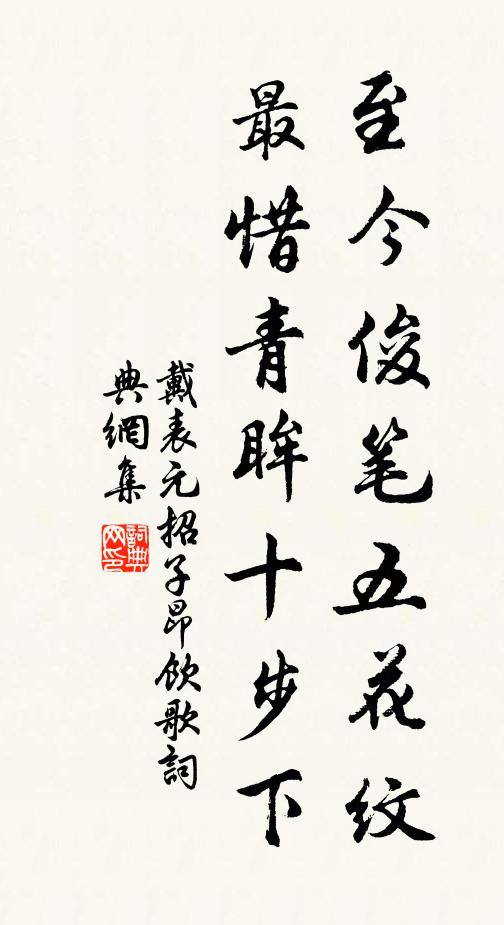 至今俊笔五花纹
最惜青眸十步下
戴表元招子昂饮歌詞
典網集
詞典网印